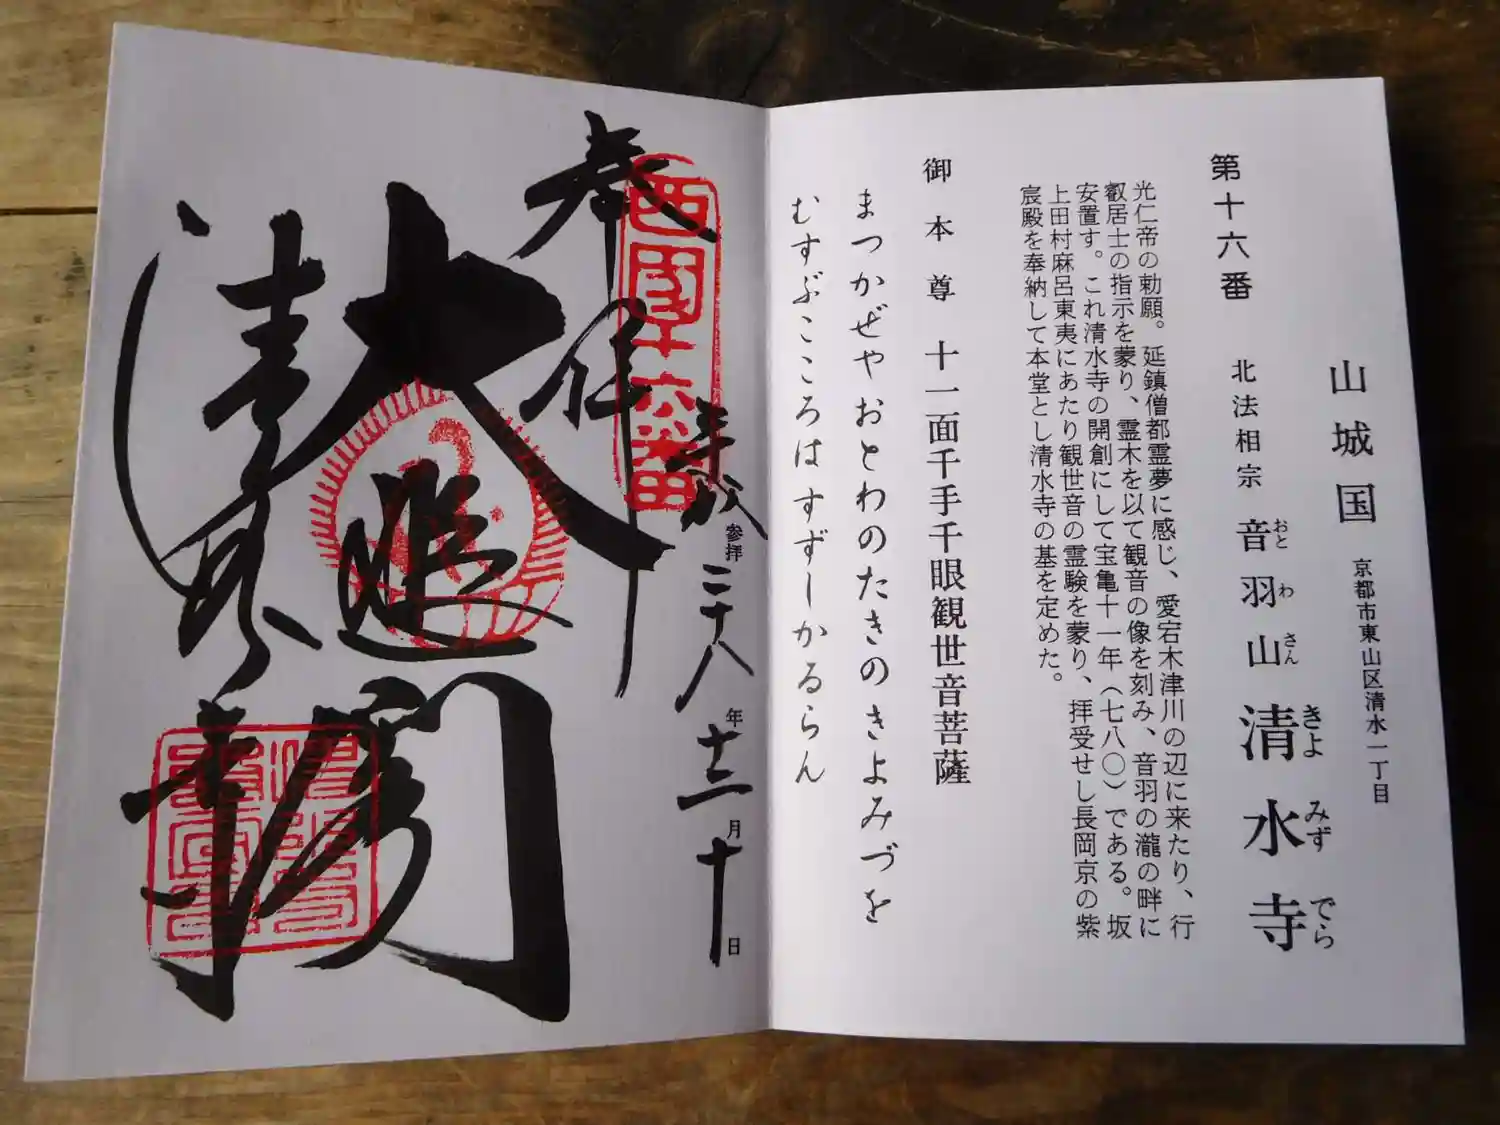 山城国 京都市東山区清水一丁目
第十六番 北法相宗 音羽山 清水寺
おと わ さん きよ みず でら
光仁帝の勅願。延鎮僧都霊夢に感じ、愛宕木津川の辺に来たり、行
叡居士の指示を蒙り、霊木を以て観音の像を刻み、音羽の瀧の畔に
安置す。これ清水寺の開創にして宝亀十一年(七八〇)である。坂
上田村麻呂東夷にあたり観世音の霊験を蒙り、拝受せし長岡京の紫
宸殿を奉納して本堂とし清水寺の基を定めた。
御本尊 十一面千手千眼観世音菩薩
まつかぜやおとわのたきのきよみづを
むすぶこころはすずしかるらん
奉拝
西国十六番
平成二十八年十二月十日
参拝
大悲閣
清水寺